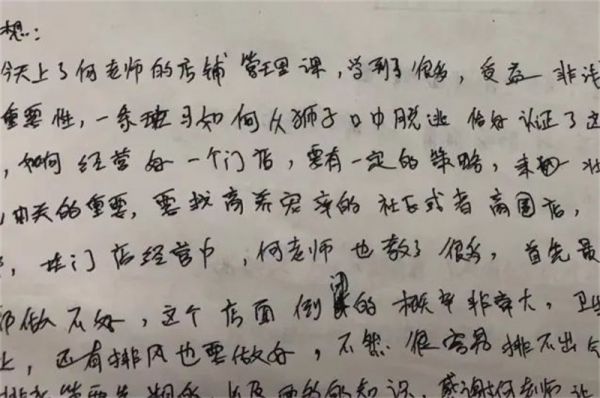 想：
今天上了何老师的店铺管理课，学到了很多，受益非浅
重要性，一条斑马如何从狮子口中脱逃 恰好认证了这
，如何经营好一个门店，要有一定的策略，
的重要，要找商养宠率的社区或者商圈店，
，在门店经营中，何老师也教了很多，首先最
做不好，这个店面倒闭的概率非常大，卫
上，还有排风也要做好，不然很容易排不出
知识，感谢何老师让